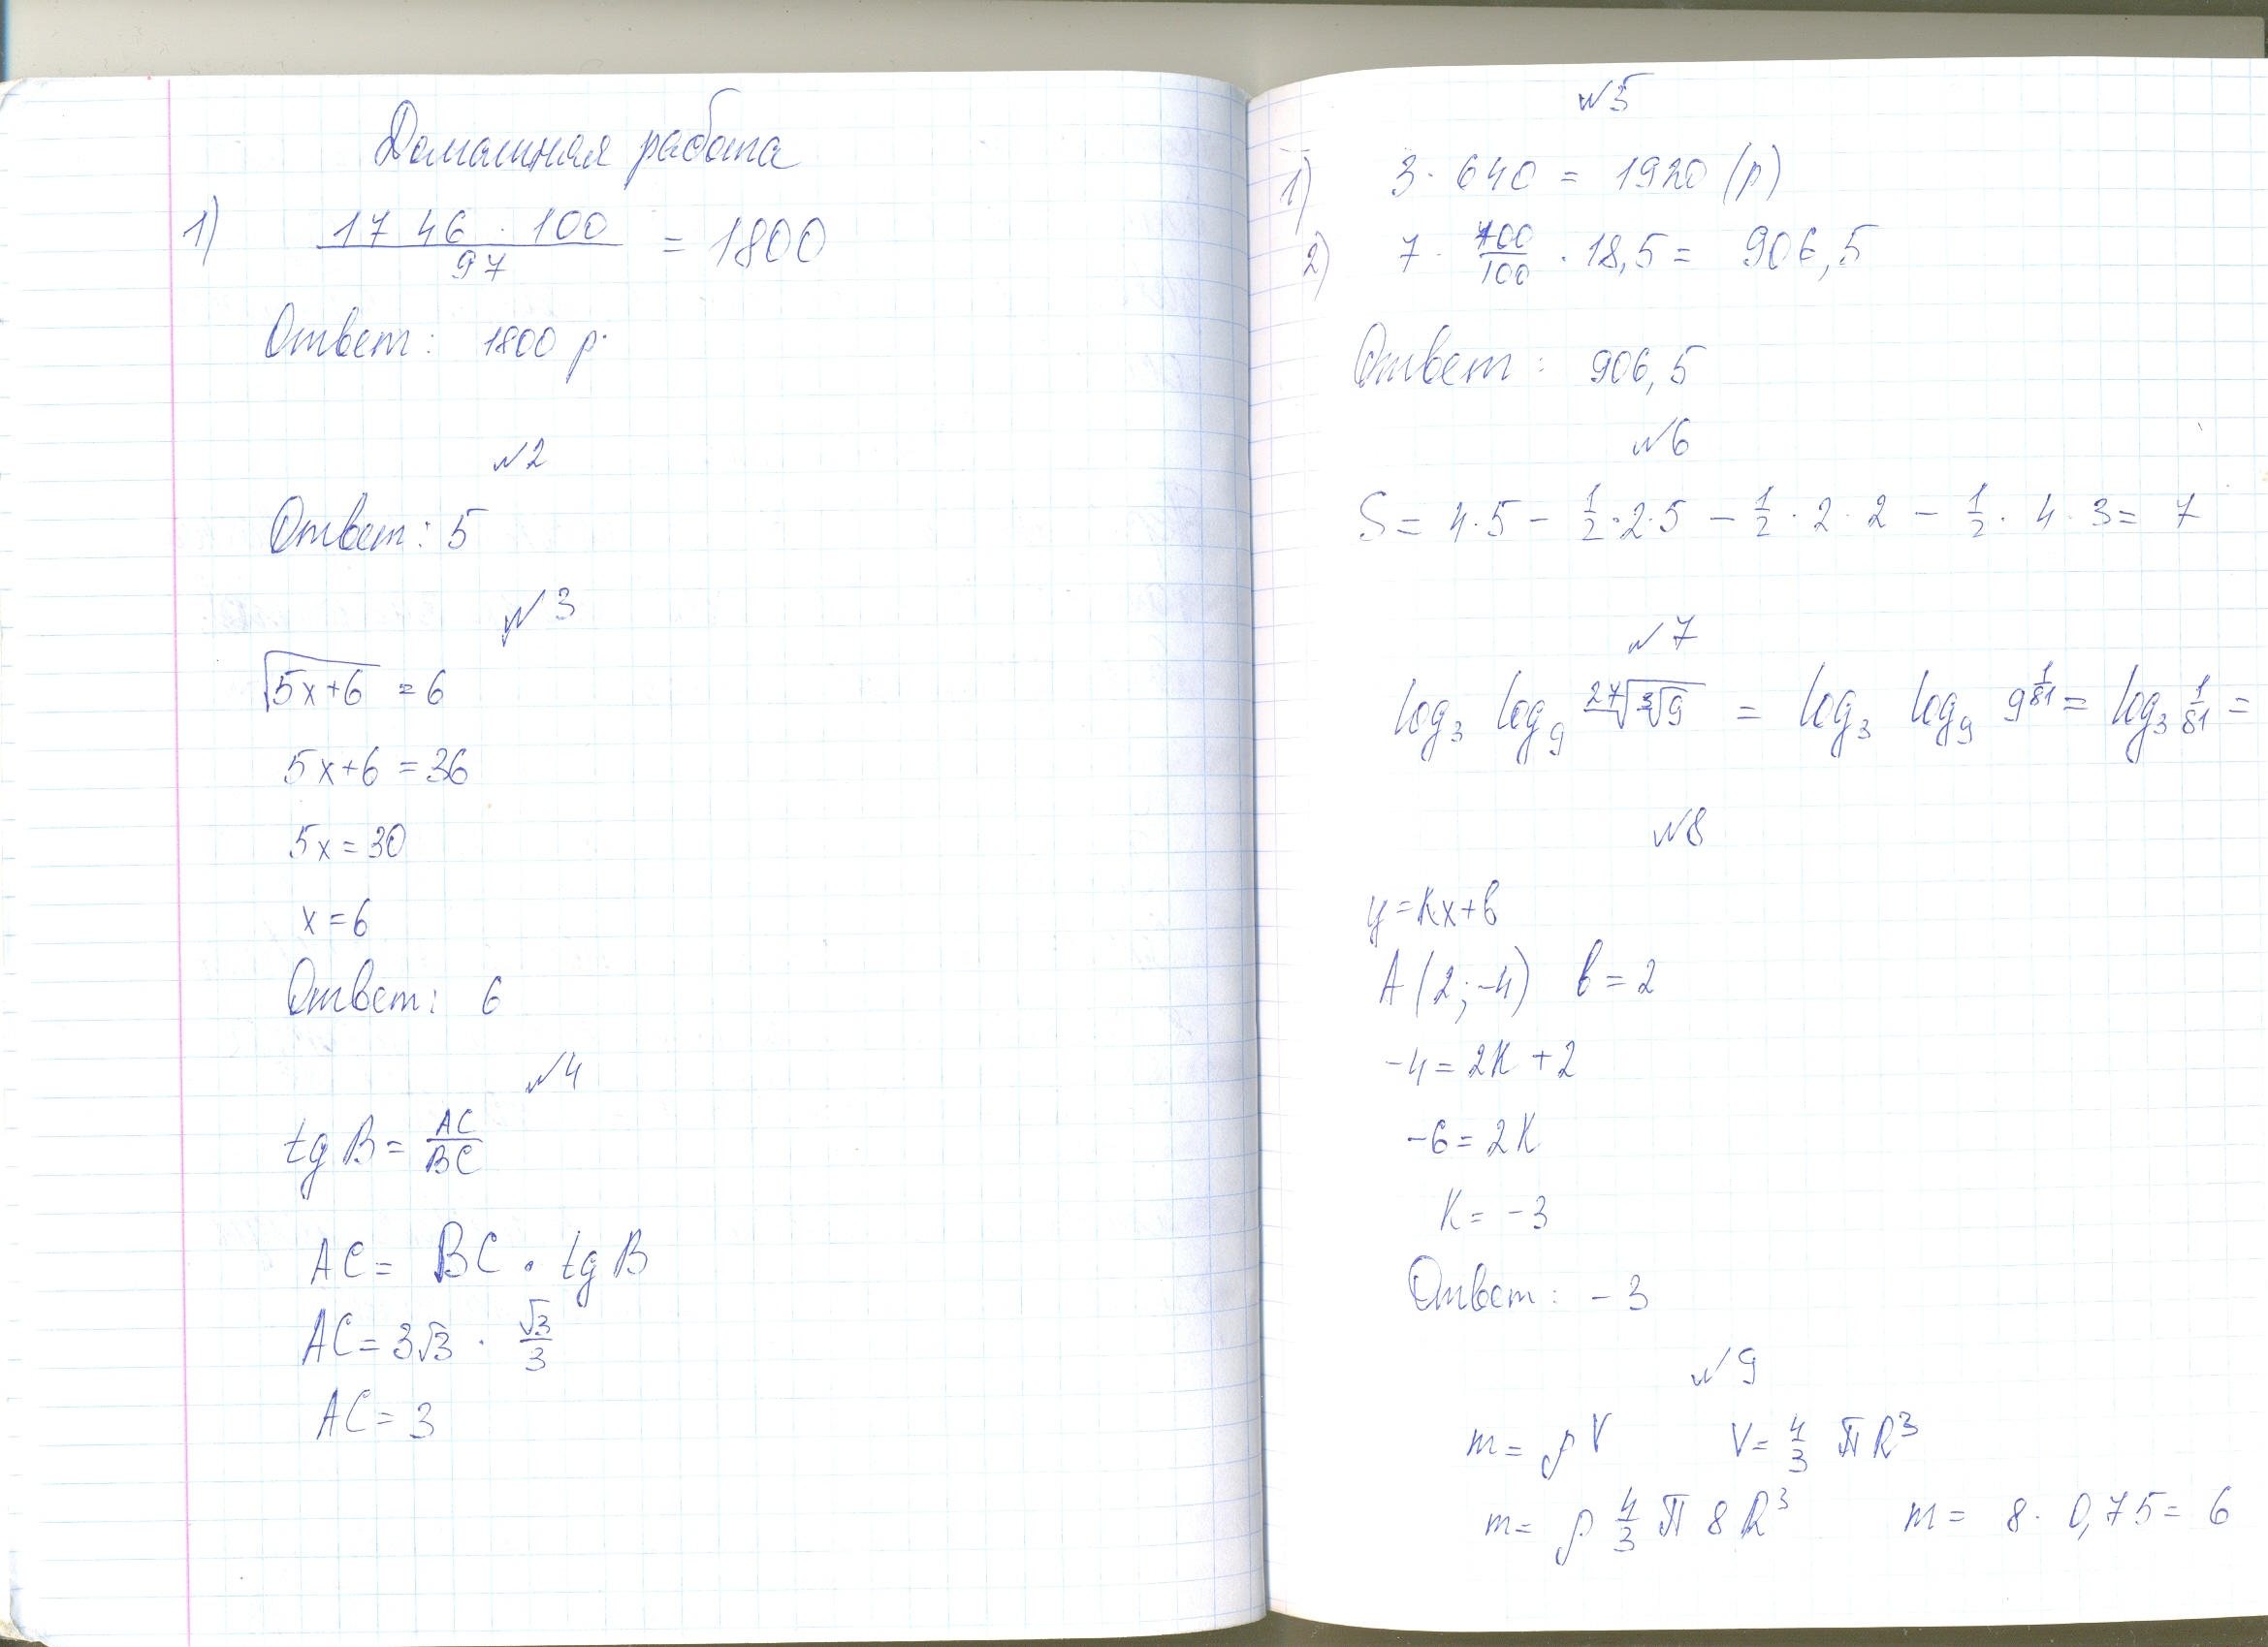 Домашняя работа
1) 17 46 · 100 / 97 = 1800
Ответ: 1800 р.
№2
Ответ: 5
№3
√(5x+6) = 6
5x+6 = 36
5x = 30
x = 6
Ответ: 6
№4
tg B = AC/BC
AC = BC · tg B
AC = 3√3 · √3/3
AC = 3
№5
1) 3 · 640 = 1920 (р)
2) 7 · 700/100 · 18,5 = 906,5
Ответ: 906,5
№6
S = 4·5 − 1/2·2·5 − 1/2·2·2 − 1/2·4·3 = 7
№7
log₃ log₉ ²⁷√(³√9) = log₃ log₉ 9^(1/81) = log₃ 1/81 =
№8
y = kx+b
A (2; -4) b = 2
-4 = 2k + 2
-6 = 2k
k = -3
Ответ: -3
№9
m = ρV V = 4/3 πR³
m = ρ 4/3 π 8R³ m = 8 · 0,75 = 6